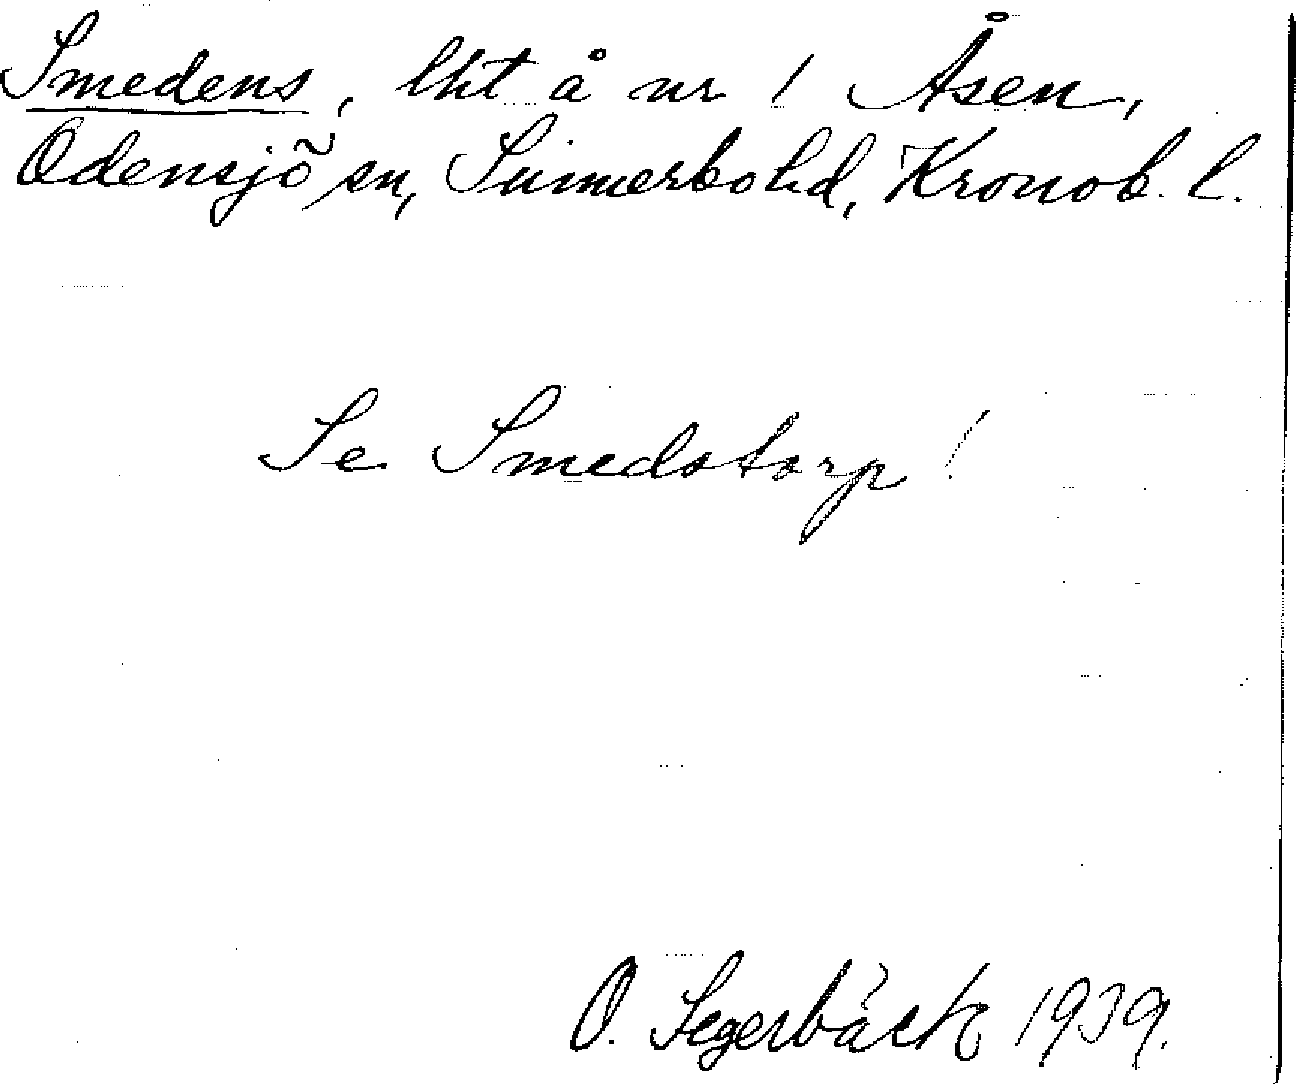 Smedens, lht å nr 1 Åsen,
Odensjö sn, Sunnerbo hd, Kronob. l.
Se Smedstorp!
O. Segerbäck 1939.